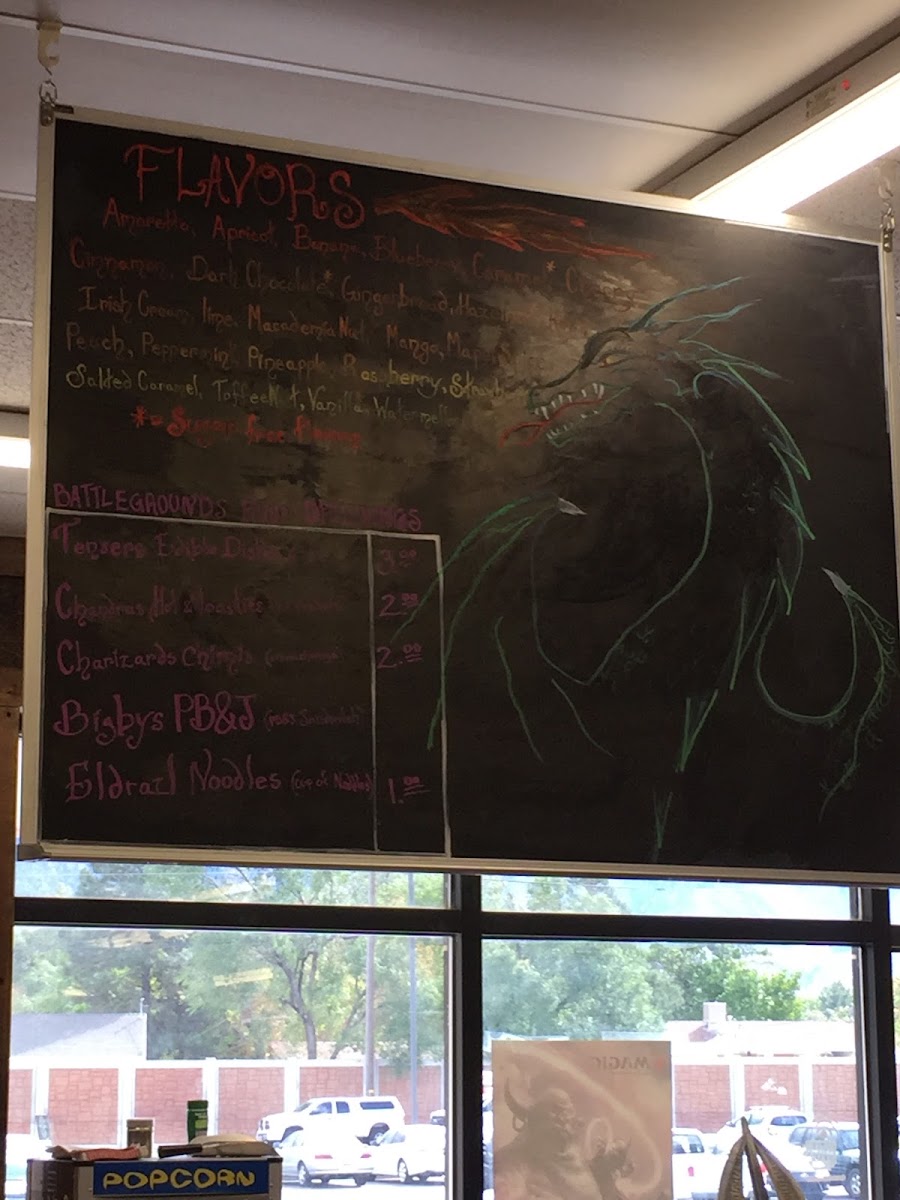 FLAVORS
Amaretto, Apricot, Banana, Blueberry, Caramel*
Cinnamon, Dark Chocolate*, Gingerbread,
Irish Cream, lime, Macadamia Nut, Mango,
Peach, Peppermint, Pineapple, Raspberry,
Salted Caramel, Toffee Nut, Vanilla,
* = Sugar free
BATTLEGROUNDS
Tensers Edible 3.00
Chandras Hot 2.00
Charizards 2.00
Bigbys PB&J
Eldrazi Noodles (Cup of Noodles) 1.00
MAGIC
POPCORN